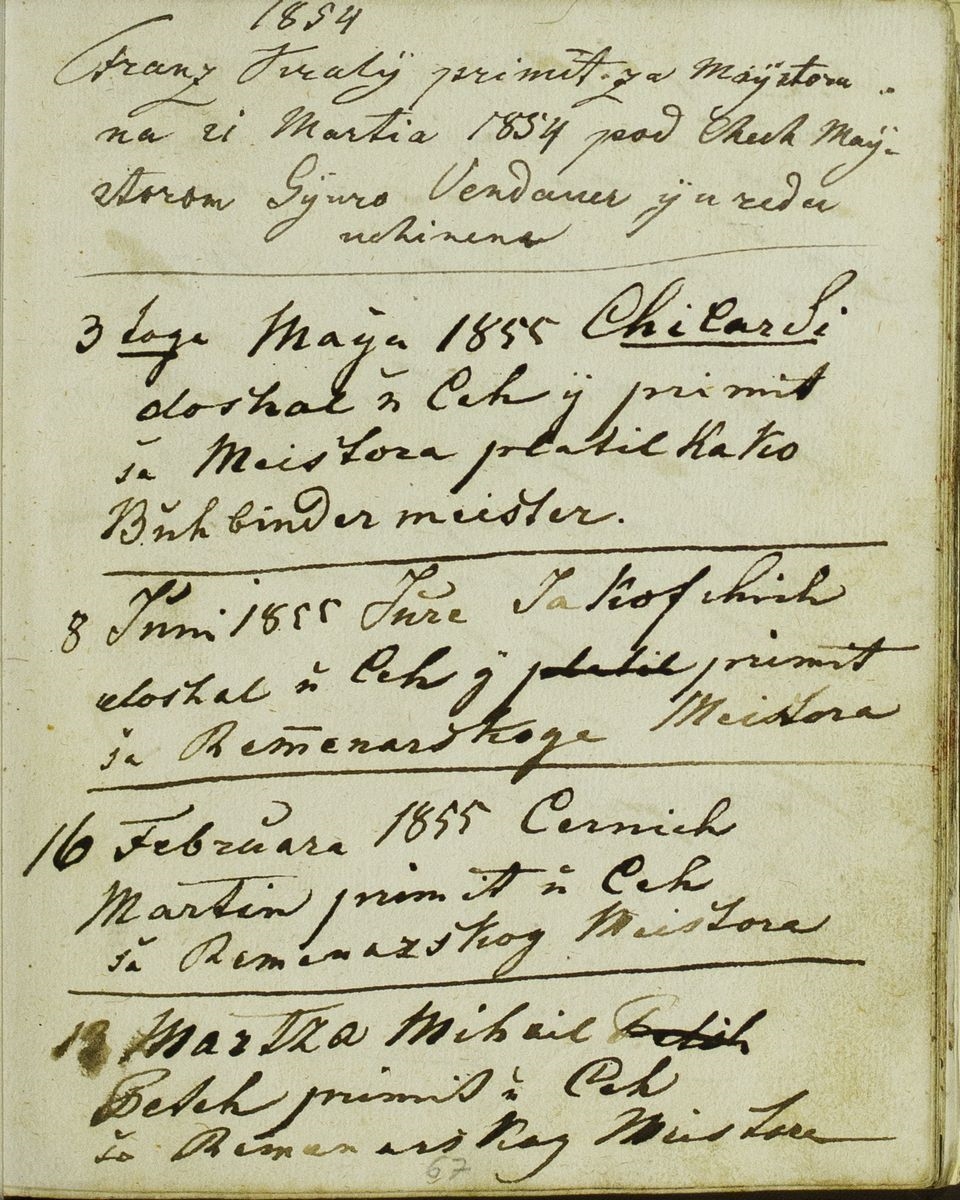 1854
Franz Kralÿ primit za Maÿstora
na 21 Martia 1854 pod Chech Maÿ-
storom Gÿuro Vendauer ÿ u redu
uchinene
3 toga Maÿa 1855 Chilardi
doshal ŭ Ceh ÿ primit
sa Meistora platil Kako
Bŭhbinder meister.
8 Juni 1855 Jŭre Jakofchich
doshal ŭ Ceh ÿ platil primit
sa Rem̅enarskoga Meistora
16 Februara 1855 Cernich
Martin primit ŭ Ceh
sa Remenarskog Meistora
Martza Mihail Petih
Petch primit ŭ Ceh
sa Remenarskog Meistora
67